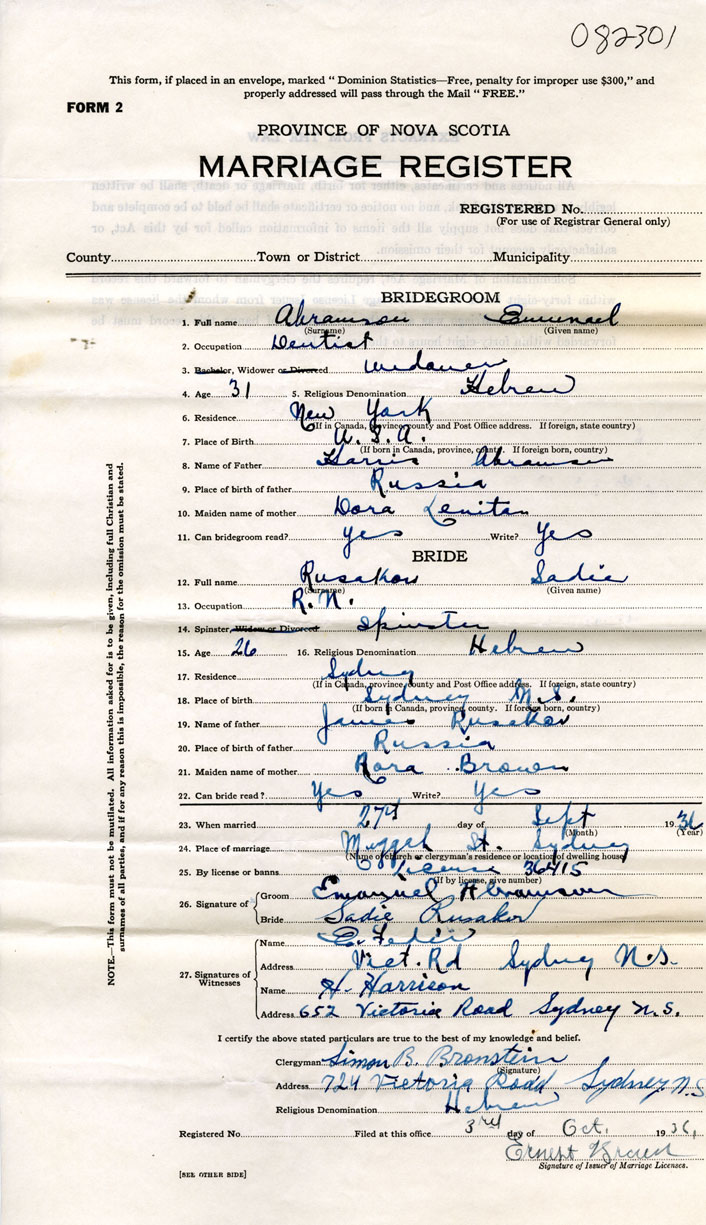 082301
This form, if placed in an envelope, marked “ Dominion Statistics—Free, penalty for improper use $300,” and
properly addressed will pass through the Mail “ FREE.”
FORM 2
PROVINCE OF NOVA SCOTIA
MARRIAGE REGISTER
REGISTERED No.
(For use of Registrar General only)
County Town or District Municipality
BRIDEGROOM
1. Full name Abramson Emanael
(Surname) (Given name)
2. Occupation Dentist
3. Bachelor, Widower or Divorced Widower
4. Age 31 5. Religious Denomination Hebrew
6. Residence New York
(If in Canada, province county and Post Office address. If foreign, state country)
7. Place of Birth U.S.A.
(If born in Canada, province, county. If foreign born, country)
8. Name of Father Harris Abramson
9. Place of birth of father Russia
10. Maiden name of mother Dora Levitan
11. Can bridegroom read? yes Write? Yes
BRIDE
12. Full name Rusakow Sadie
(Surname) (Given name)
13. Occupation R.N.
14. Spinster, Widow or Divorced Spinster
15. Age 26 16. Religious Denomination Hebrew
17. Residence Sydney
(If in Canada, province, county and Post Office address. If foreign, state country)
18. Place of birth Sydney N.S.
(If born in Canada, province, county. If foreign born, country)
19. Name of father James Rusakow
20. Place of birth of father Russia
21. Maiden name of mother Rora Brown
22. Can bride read ? Yes Write? Yes
23. When married 27th day of Sept 1936
(Month) (Year)
24. Place of marriage St. Sydney
(Name of church or clergyman's residence or location of dwelling house)
25. By license or banns License 36415
(If by license, give number)
26. Signature of Groom Emanuel Abramson
Bride Sadie Rusakow
27. Signatures of Witnesses
Name
Address Vict. Rd Sydney N.S.
Name H. Harrison
Address 652 Victoria Road Sydney N.S.
I certify the above stated particulars are true to the best of my knowledge and belief.
Clergyman Simon B. Bronstein
(Signature)
Address 724 Victoria Road Sydney N.S
Religious Denomination Hebrew
Registered No. Filed at this office 3rd day of Oct. 1936,
Ernest
Signature of Issuer of Marriage Licenses.
[SEE OTHER SIDE]
NOTE.—This form must not be mutilated. All information asked for is to be given, including full Christian and
surnames of all parties, and if for any reason this is impossible, the reason for the omission must be stated.